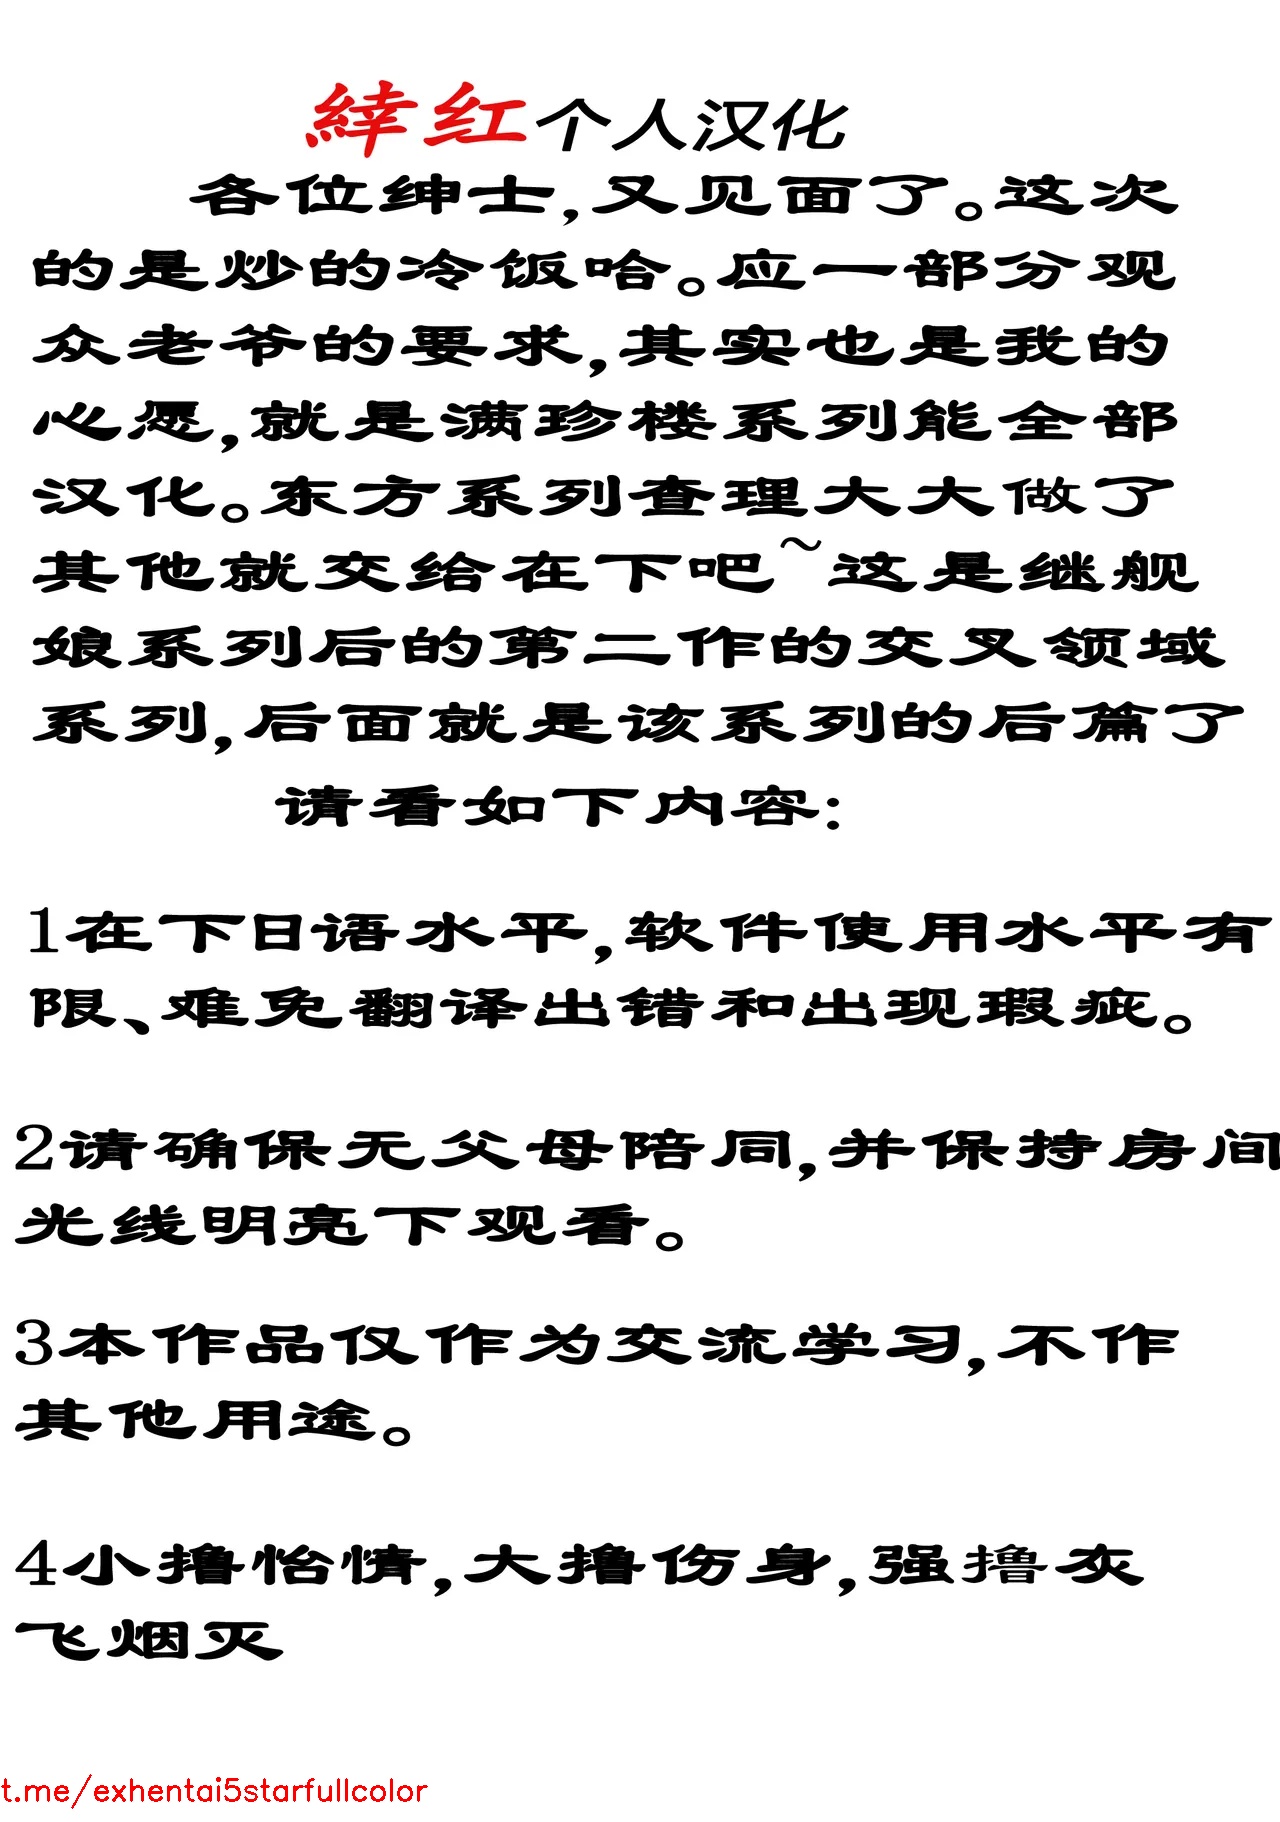 縡红个人汉化
各位绅士,又见面了。这次
的是炒的冷饭哈。应一部分观
众老爷的要求,其实也是我的
心愿,就是满珍楼系列能全部
汉化。东方系列查理大大做了
其他就交给在下吧~这是继舰
娘系列后的第二作的交叉领域
系列,后面就是该系列的后篇了
请看如下内容:
1在下日语水平,软件使用水平有
限、难免翻译出错和出现瑕疵。
2请确保无父母陪同,并保持房间
光线明亮下观看。
3本作品仅作为交流学习,不作
其他用途。
4小撸怡情,大撸伤身,强撸灰
飞烟灭
t.me/exhentai5starfullcolor